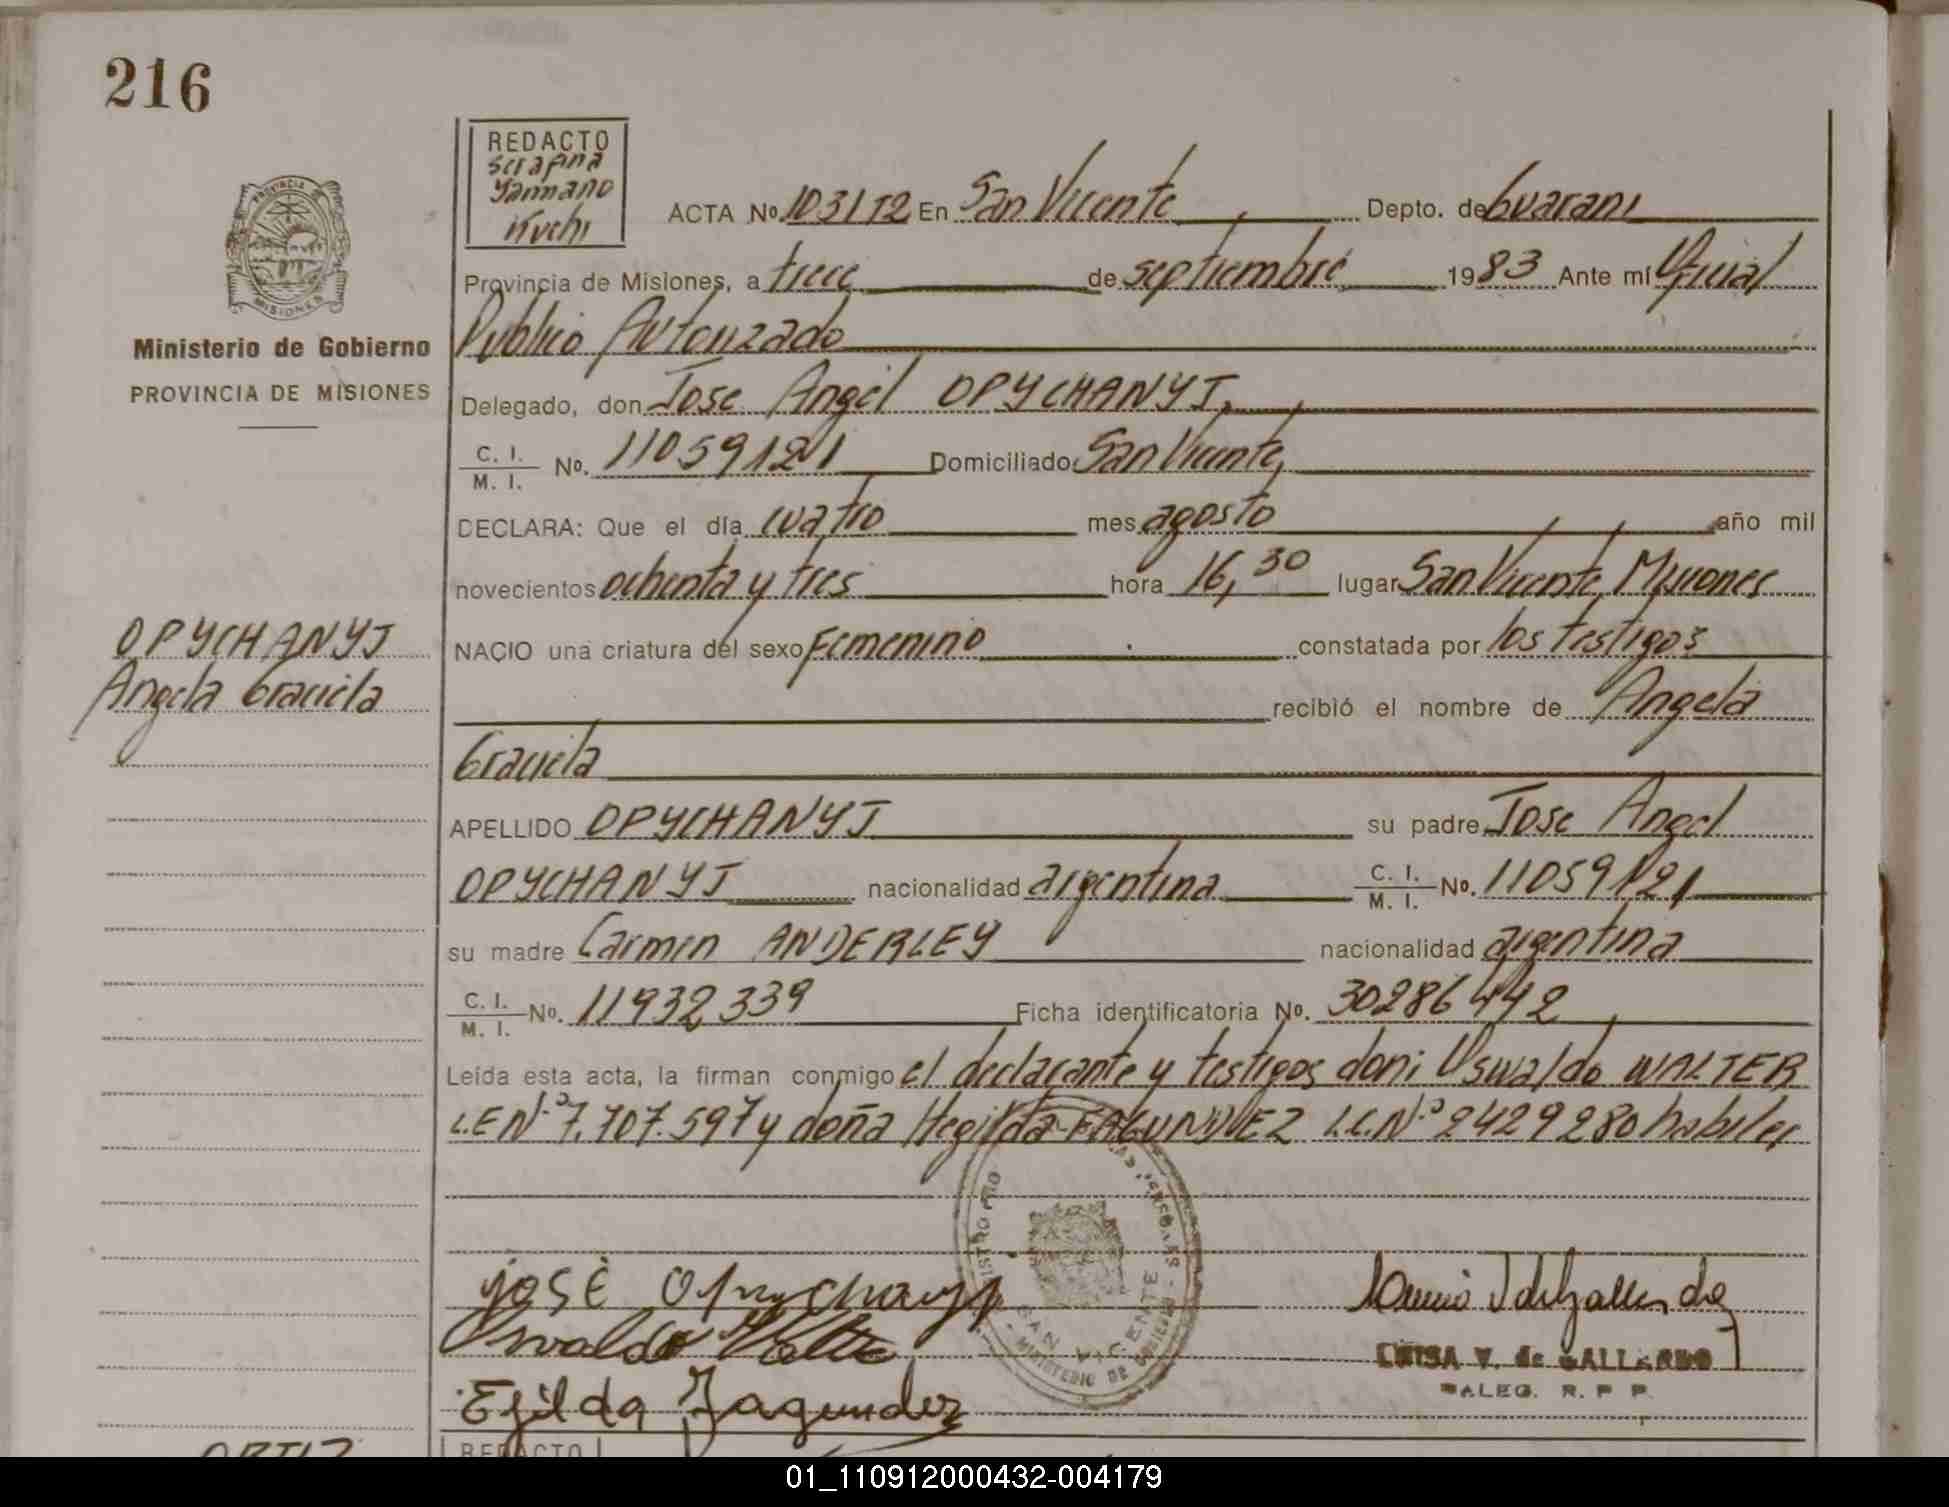 216
REDACTO
Serafina
Yannano
Kuchi
ACTA No. 1031T2 En San Vicente, Depto. de Guarani
Provincia de Misiones, a trece de septiembre 1983 Ante mí Oficial
Publico Autorizado
Delegado, don Jose Angel OPYCHANYJ,
C. I.
M. I. No. 11059121 Domiciliado San Vicente,
DECLARA: Que el día cuatro mes agosto año mil
novecientos ochenta y tres hora 16,30 lugar San Vicente, Misiones
NACIO una criatura del sexo Femenino constatada por los testigos
recibió el nombre de Angela
Graciela
APELLIDO OPYCHANYJ su padre Jose Angel
OPYCHANYJ nacionalidad argentina C. I. M. I. No. 11059121
su madre Carmen ANDERLEY nacionalidad argentina
C. I.
M. I. No. 11932339 Ficha identificatoria No. 30286442
Leída esta acta, la firman conmigo el declarante y testigos don: Oswaldo WALTER
L.E Nº 7.707.597 y doña Hegilda FAGUNDEZ L.C.Nº 2429280 habiles
PROVINCIA
MISIONES
Ministerio de Gobierno
PROVINCIA DE MISIONES
OPYCHANYJ
Angela Graciela
JOSÉ Opychanyj
Osvaldo Walter
Egilda Fagundez
SAN VICENTE
MINISTERIO DE GOBIERNO
LUISA V. de GALLARDO
DALEG. R. P P.
ORTIZ
REDACTO
01_110912000432-004179